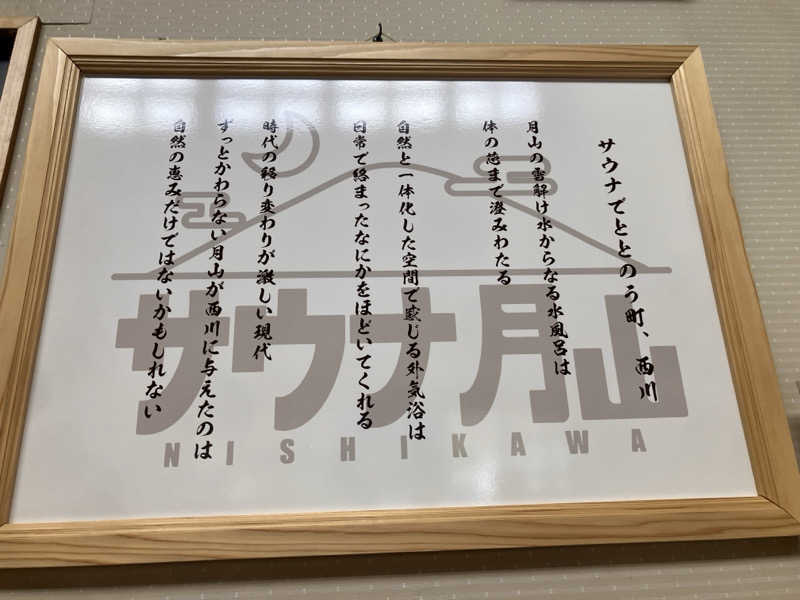 サウナでととのう町、西川
月山の雪解け水からなる水風呂は
体の芯まで澄みわたる
自然と一体化した空間で感じる外気浴は
日常で絡まったなにかをほどいてくれる
時代の移り変わりが激しい現代
ずっとかわらない月山が西川に与えたのは
自然の恵みだけではないかもしれない
サウナ月山
NISHIKAWA